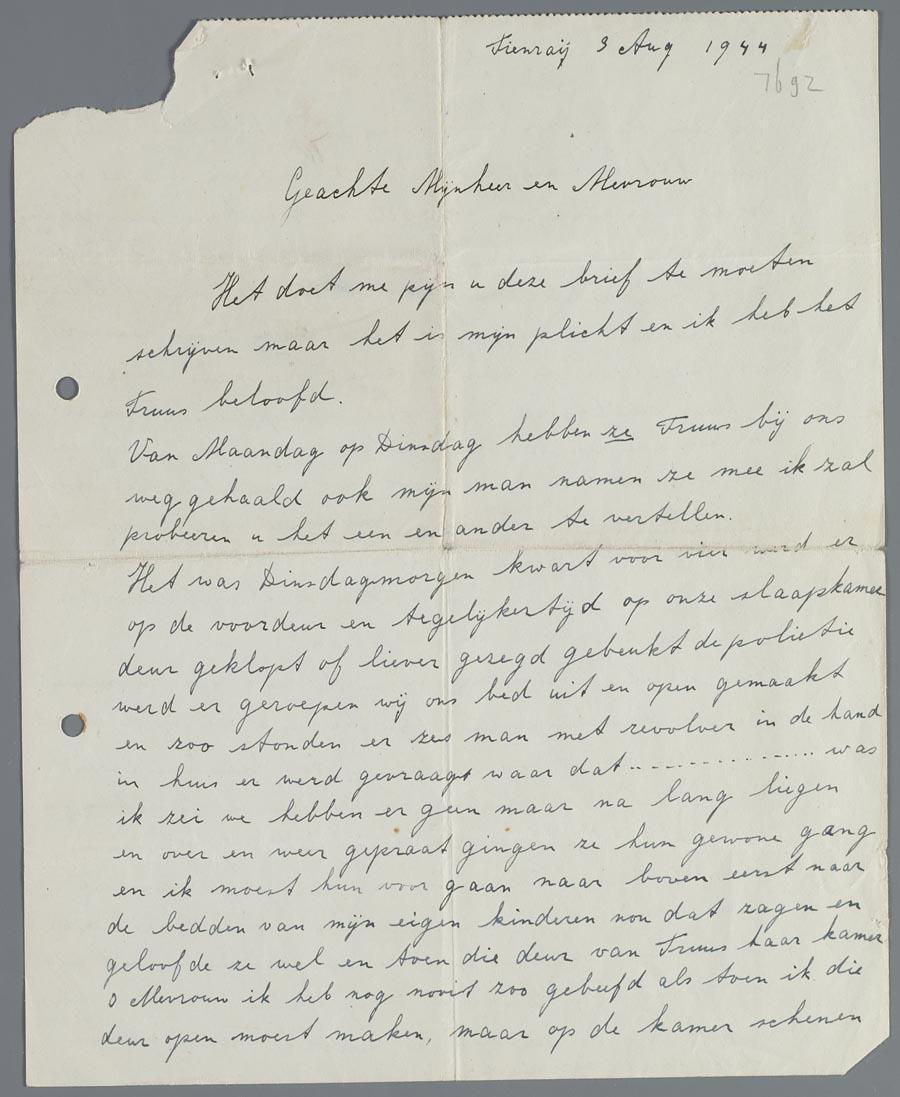 Tienraij 3 Aug 1944
7692
Geachte Mijnheer en Mevrouw
Het doet me pijn u deze brief te moeten
schrijven maar het is mijn plicht en ik heb het
Truus beloofd.
Van Maandag op Dinsdag hebben ze Truus bij ons
weg gehaald ook mijn man namen ze mee ik zal
probeeren u het een en ander te vertellen.
Het was Dinsdagsmorgen kwart voor vier werd er
op de voordeur en tegelijkertijd op onze slaapkamer
deur geklopt of liever gezegd gebeukt de polietie
werd er geroepen wij ons bed uit en open gemaakt
en zoo stonden er zes man met revolver in de hand
in huis er werd gevraagt waar dat ................ was
ik zei we hebben er geen maar na lang liegen
en over en weer gepraat gingen ze hun gewone gang
en ik moest hun voor gaan naar boven eerst naar
de bedden van mijn eigen kinderen nou dat zagen en
geloofde ze wel en toen die deur van Truus haar kamer
O Mevrouw ik heb nog nooit zoo gebeefd als toen ik die
deur open moest maken, maar op de kamer schenen